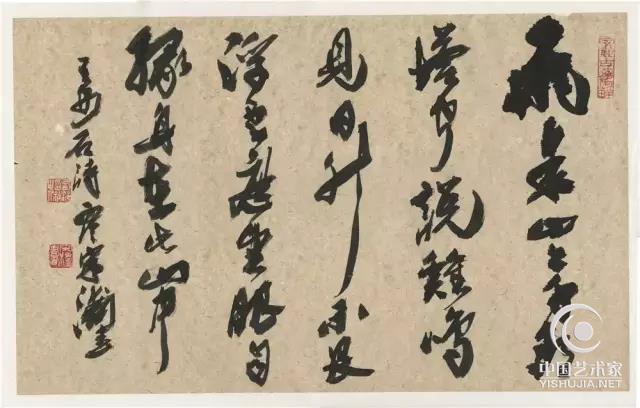 飛来山上千尋
塔聞說雞鳴
見日升不畏
浮雲遮望眼自
緣身在
王安石詩
中国艺术家
YISHUJIA.NET